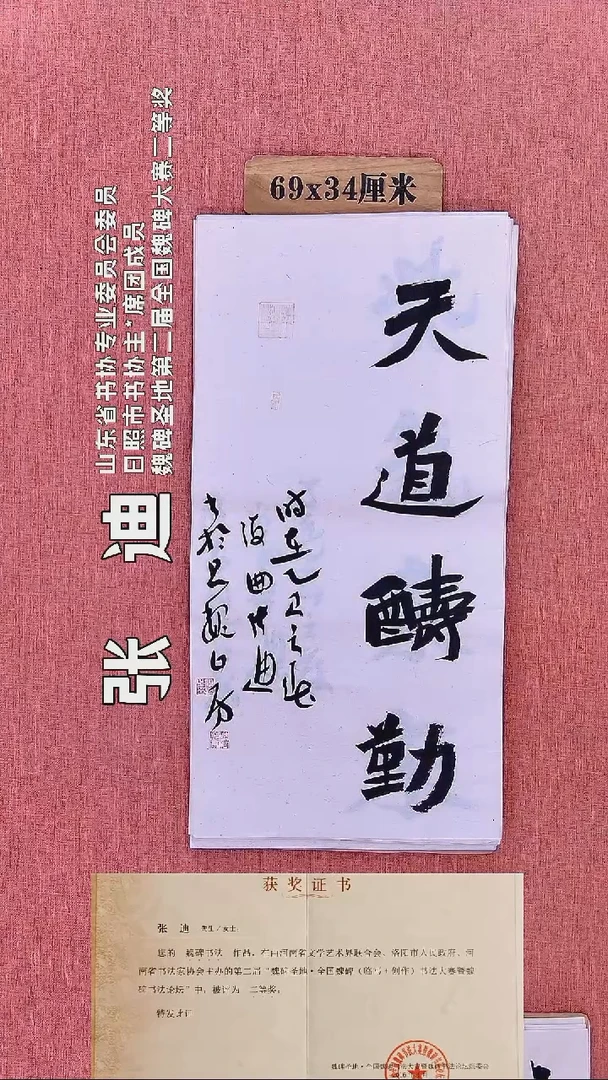 69x34厘米
天道醻勤
时在乙巳之
海曲张迪
张 迪
山东省书协专业委员会委员
日照市书协主·席团成员
魏碑圣地第二届全国魏碑大赛二等奖
获奖证书
张 迪 先生/女士
您的 魏碑书法 作品，在由河南省文学艺术界联合会、洛阳市人民政府、河
南省书法家协会主办的第二届“魏碑圣地·全国魏碑（临写+创作）书法大赛暨魏
碑书法论坛”中，被评为 二等奖。
特发此证